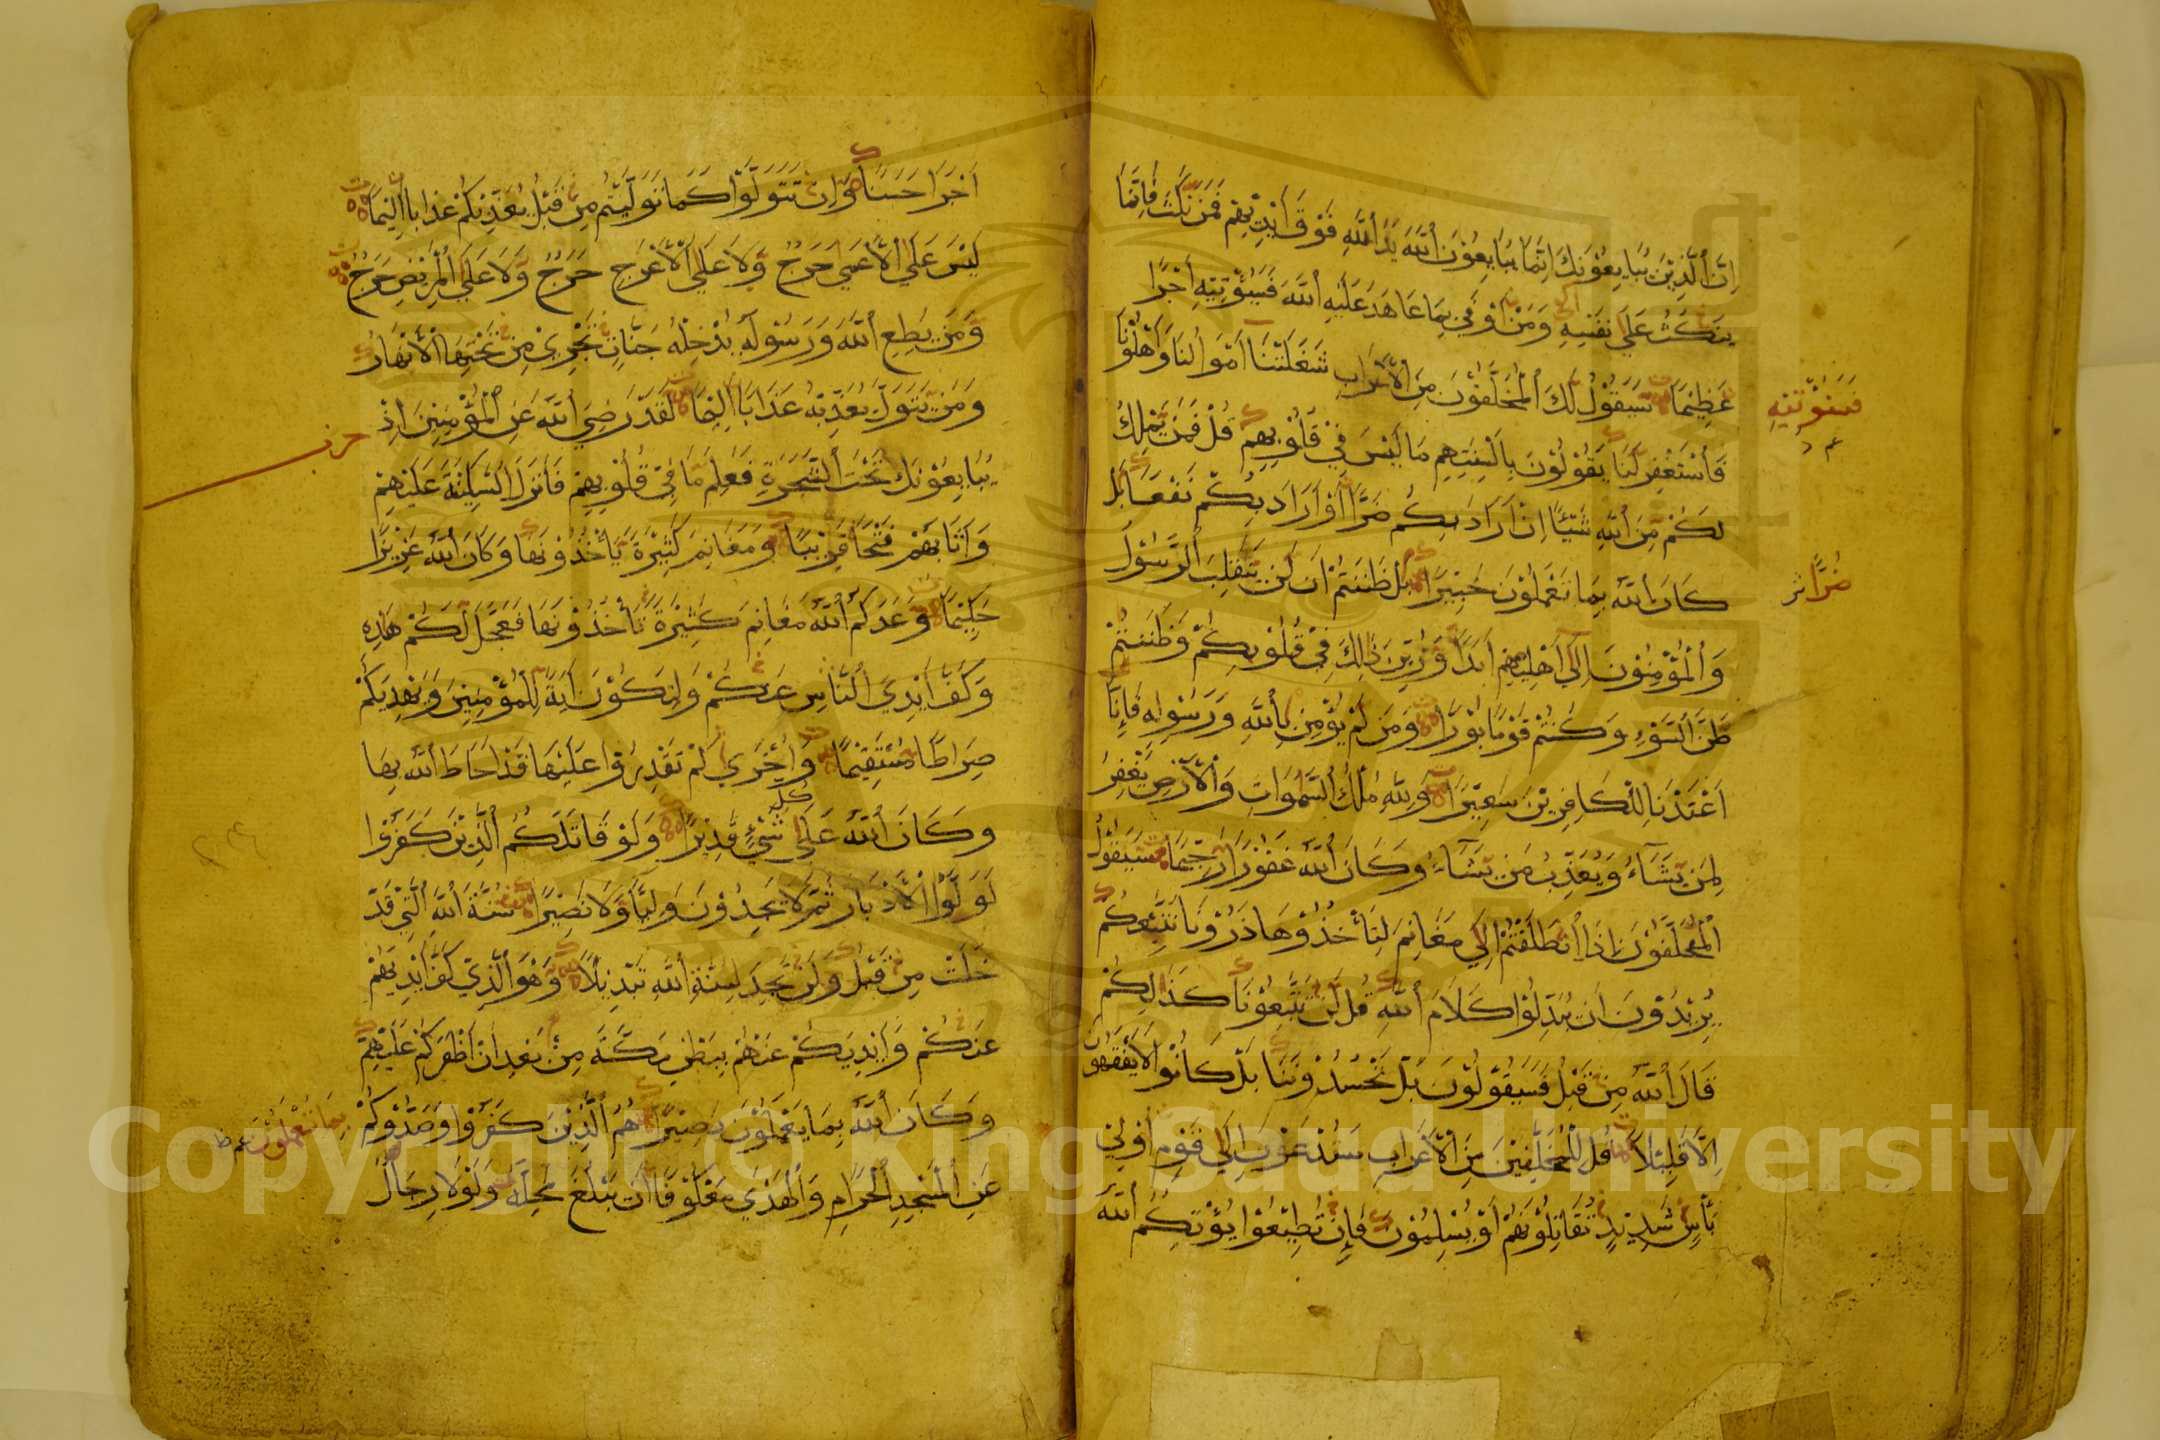 اِنَّ الَّذِيْنَ يُبَايِعُوْنَكَ اِنَّمَا يُبَايِعُوْنَ اللّٰهَ يَدُ اللّٰهِ فَوْقَ اَيْدِيْهِمْ فَمَنْ نَكَثَ فَاِنَّمَا
يَنْكُثُ عَلَى نَفْسِهِ وَمَنْ اَوْفَى بِمَا عَاهَدَ عَلَيْهِ اللّٰهَ فَسَيُؤْتِيْهِ اَجْرًا
عَظِيْمًا سَيَقُوْلُ لَكَ الْمُخَلَّفُوْنَ مِنَ الْاَعْرَابِ شَغَلَتْنَا اَمْوَالُنَا وَاَهْلُوْنَا
فَاسْتَغْفِرْ لَنَا يَقُوْلُوْنَ بِاَلْسِنَتِهِمْ مَا لَيْسَ فِيْ قُلُوْبِهِمْ قُلْ فَمَنْ يَمْلِكُ
لَكُمْ مِنَ اللّٰهِ شَيْئًا اِنْ اَرَادَ بِكُمْ ضَرًّا اَوْ اَرَادَ بِكُمْ نَفْعًا بَلْ
كَانَ اللّٰهُ بِمَا تَعْمَلُوْنَ خَبِيْرًا بَلْ ظَنَنْتُمْ اَنْ لَنْ يَنْقَلِبَ الرَّسُوْلُ
وَالْمُؤْمِنُوْنَ اِلَى اَهْلِيْهِمْ اَبَدًا وَزُيِّنَ ذٰلِكَ فِيْ قُلُوْبِكُمْ وَظَنَنْتُمْ
ظَنَّ السَّوْءِ وَكُنْتُمْ قَوْمًا بُوْرًا وَمَنْ لَمْ يُؤْمِنْ بِاللّٰهِ وَرَسُوْلِهِ فَاِنَّا
اَعْتَدْنَا لِلْكَافِرِيْنَ سَعِيْرًا وَلِلّٰهِ مُلْكُ السَّمٰوَاتِ وَالْاَرْضِ يَغْفِرُ
لِمَنْ يَشَاءُ وَيُعَذِّبُ مَنْ يَشَاءُ وَكَانَ اللّٰهُ غَفُوْرًا رَحِيْمًا سَيَقُوْلُ
الْمُخَلَّفُوْنَ اِذَا انْطَلَقْتُمْ اِلَى مَغَانِمَ لِتَأْخُذُوْهَا ذَرُوْنَا نَتَّبِعْكُمْ
يُرِيْدُوْنَ اَنْ يُبَدِّلُوْا كَلَامَ اللّٰهِ قُلْ لَنْ تَتَّبِعُوْنَا كَذٰلِكُمْ
قَالَ اللّٰهُ مِنْ قَبْلُ فَسَيَقُوْلُوْنَ بَلْ تَحْسُدُوْنَنَا بَلْ كَانُوْا لَا يَفْقَهُوْنَ
اِلَّا قَلِيْلًا قُلْ لِلْمُخَلَّفِيْنَ مِنَ الْاَعْرَابِ سَتُدْعَوْنَ اِلَى قَوْمٍ اُولِيْ
بَأْسٍ شَدِيْدٍ تُقَاتِلُوْنَهُمْ اَوْ يُسْلِمُوْنَ فَاِنْ تُطِيْعُوْا يُؤْتِكُمُ اللّٰهُ
فَسَنُؤْتِيْهِ
ضُرًّا
اَجْرًا حَسَنًا وَاِنْ تَتَوَلَّوْا كَمَا تَوَلَّيْتُمْ مِنْ قَبْلُ يُعَذِّبْكُمْ عَذَابًا اَلِيْمًا
لَيْسَ عَلَى الْاَعْمَى حَرَجٌ وَلَا عَلَى الْاَعْرَجِ حَرَجٌ وَلَا عَلَى الْمَرِيْضِ حَرَجٌ
وَمَنْ يُطِعِ اللّٰهَ وَرَسُوْلَهُ يُدْخِلْهُ جَنَّاتٍ تَجْرِيْ مِنْ تَحْتِهَا الْاَنْهَارُ
وَمَنْ يَتَوَلَّ يُعَذِّبْهُ عَذَابًا اَلِيْمًا لَقَدْ رَضِيَ اللّٰهُ عَنِ الْمُؤْمِنِيْنَ اِذْ
حزب
يُبَايِعُوْنَكَ تَحْتَ الشَّجَرَةِ فَعَلِمَ مَا فِيْ قُلُوْبِهِمْ فَاَنْزَلَ السَّكِيْنَةَ عَلَيْهِمْ
وَاَثَابَهُمْ فَتْحًا قَرِيْبًا وَمَغَانِمَ كَثِيْرَةً يَأْخُذُوْنَهَا وَكَانَ اللّٰهُ عَزِيْزًا
حَكِيْمًا وَعَدَكُمُ اللّٰهُ مَغَانِمَ كَثِيْرَةً تَأْخُذُوْنَهَا فَعَجَّلَ لَكُمْ هٰذِهِ
وَكَفَّ اَيْدِيَ النَّاسِ عَنْكُمْ وَلِتَكُوْنَ اٰيَةً لِلْمُؤْمِنِيْنَ وَيَهْدِيَكُمْ
صِرَاطًا مُسْتَقِيْمًا وَاُخْرَى لَمْ تَقْدِرُوْا عَلَيْهَا قَدْ اَحَاطَ اللّٰهُ بِهَا
وَكَانَ اللّٰهُ عَلَى كُلِّ شَيْءٍ قَدِيْرًا وَلَوْ قَاتَلَكُمُ الَّذِيْنَ كَفَرُوْا
لَوَلَّوُا الْاَدْبَارَ ثُمَّ لَا يَجِدُوْنَ وَلِيًّا وَلَا نَصِيْرًا سُنَّةَ اللّٰهِ الَّتِيْ قَدْ
خَلَتْ مِنْ قَبْلُ وَلَنْ تَجِدَ لِسُنَّةِ اللّٰهِ تَبْدِيْلًا وَهُوَ الَّذِيْ كَفَّ اَيْدِيَهُمْ
عَنْكُمْ وَاَيْدِيَكُمْ عَنْهُمْ بِبَطْنِ مَكَّةَ مِنْ بَعْدِ اَنْ اَظْفَرَكُمْ عَلَيْهِمْ
وَكَانَ اللّٰهُ بِمَا يَعْمَلُوْنَ بَصِيْرًا هُمُ الَّذِيْنَ كَفَرُوْا وَصَدُّوْكُمْ
بِمَا تَعْمَلُوْنَ
عَنِ الْمَسْجِدِ الْحَرَامِ وَالْهَدْيَ مَعْكُوْفًا اَنْ يَبْلُغَ مَحِلَّهُ وَلَوْلَا رِجَالٌ
Copyright © King Saud University